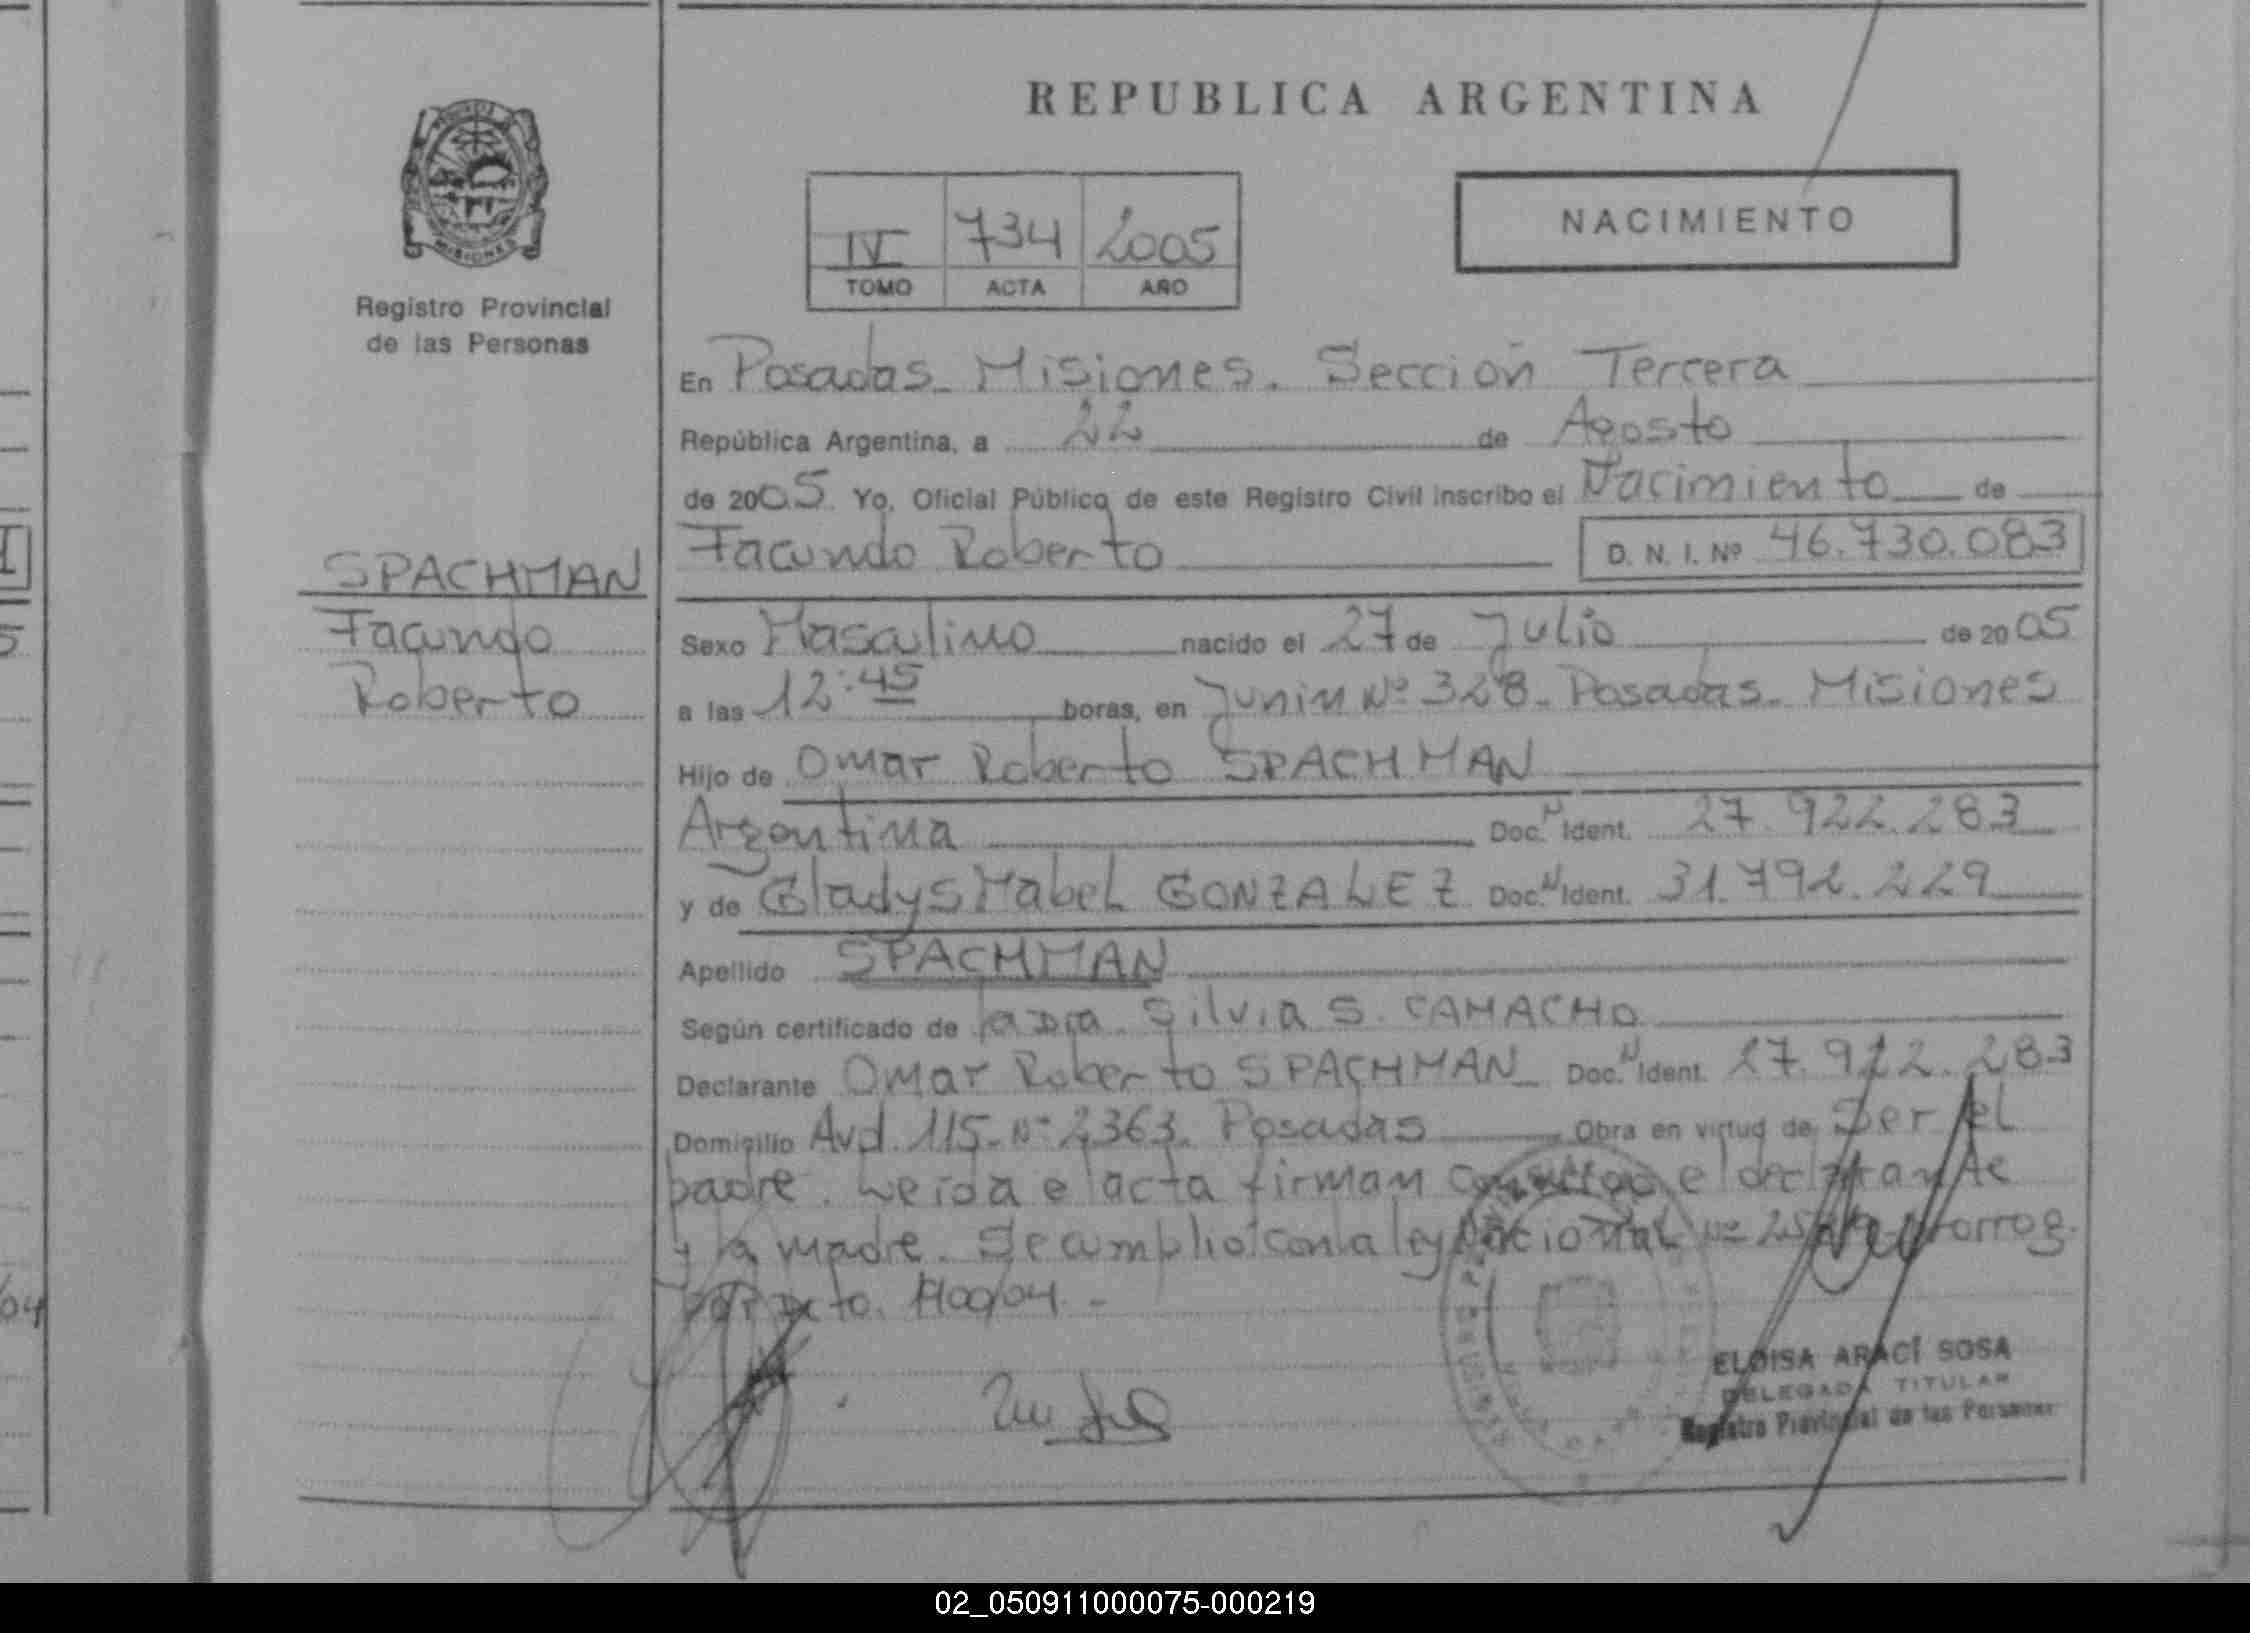 REPUBLICA ARGENTINA
NACIMIENTO
IV 734 2005
TOMO ACTA AÑO
MISIONES
Registro Provincial
de las Personas
SPACHMAN
Facundo
Roberto
En Posadas. Misiones. Sección Tercera
República Argentina, a 22 de Agosto
de 2005. Yo, Oficial Público de este Registro Civil inscribo el Nacimiento de
Facundo Roberto D. N. I. Nº 46.730.083
Sexo Masculino nacido el 27 de Julio de 2005
a las 12:45 horas, en Junin Nº 328. Posadas. Misiones
Hijo de Omar Roberto SPACHMAN
Argentina Doc. N Ident. 27.922.283
y de Gladys Mabel GONZALEZ Doc. N Ident. 31.792.229
Apellido SPACHMAN
Según certificado de la Dra. Silvia S. CAMACHO
Declarante Omar Roberto SPACHMAN Doc. N Ident. 27.922.283
Domicilio Avd. 115. Nº 2363. Posadas Obra en virtud de Ser el
padre. Leida el acta firman el declarante
y la madre. Se cumplio con la ley Nacional Nº prorrog.
por Dcto.
ELOISA ARACÍ SOSA
DELEGADA TITULAR
Registro Provincial de las Personas
04
02_050911000075-000219